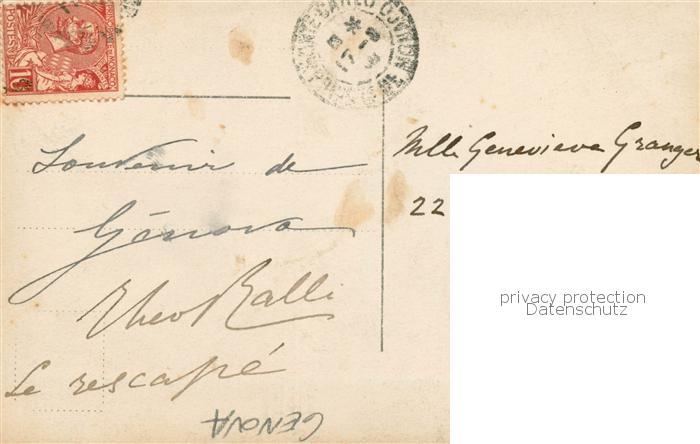 10
MONTE CARLO
Souvenir de
Génova
Theo Ralli
Le rescapé
GENOVA
Mlle Genevieve Granger
22
privacy protection
Datenschutz